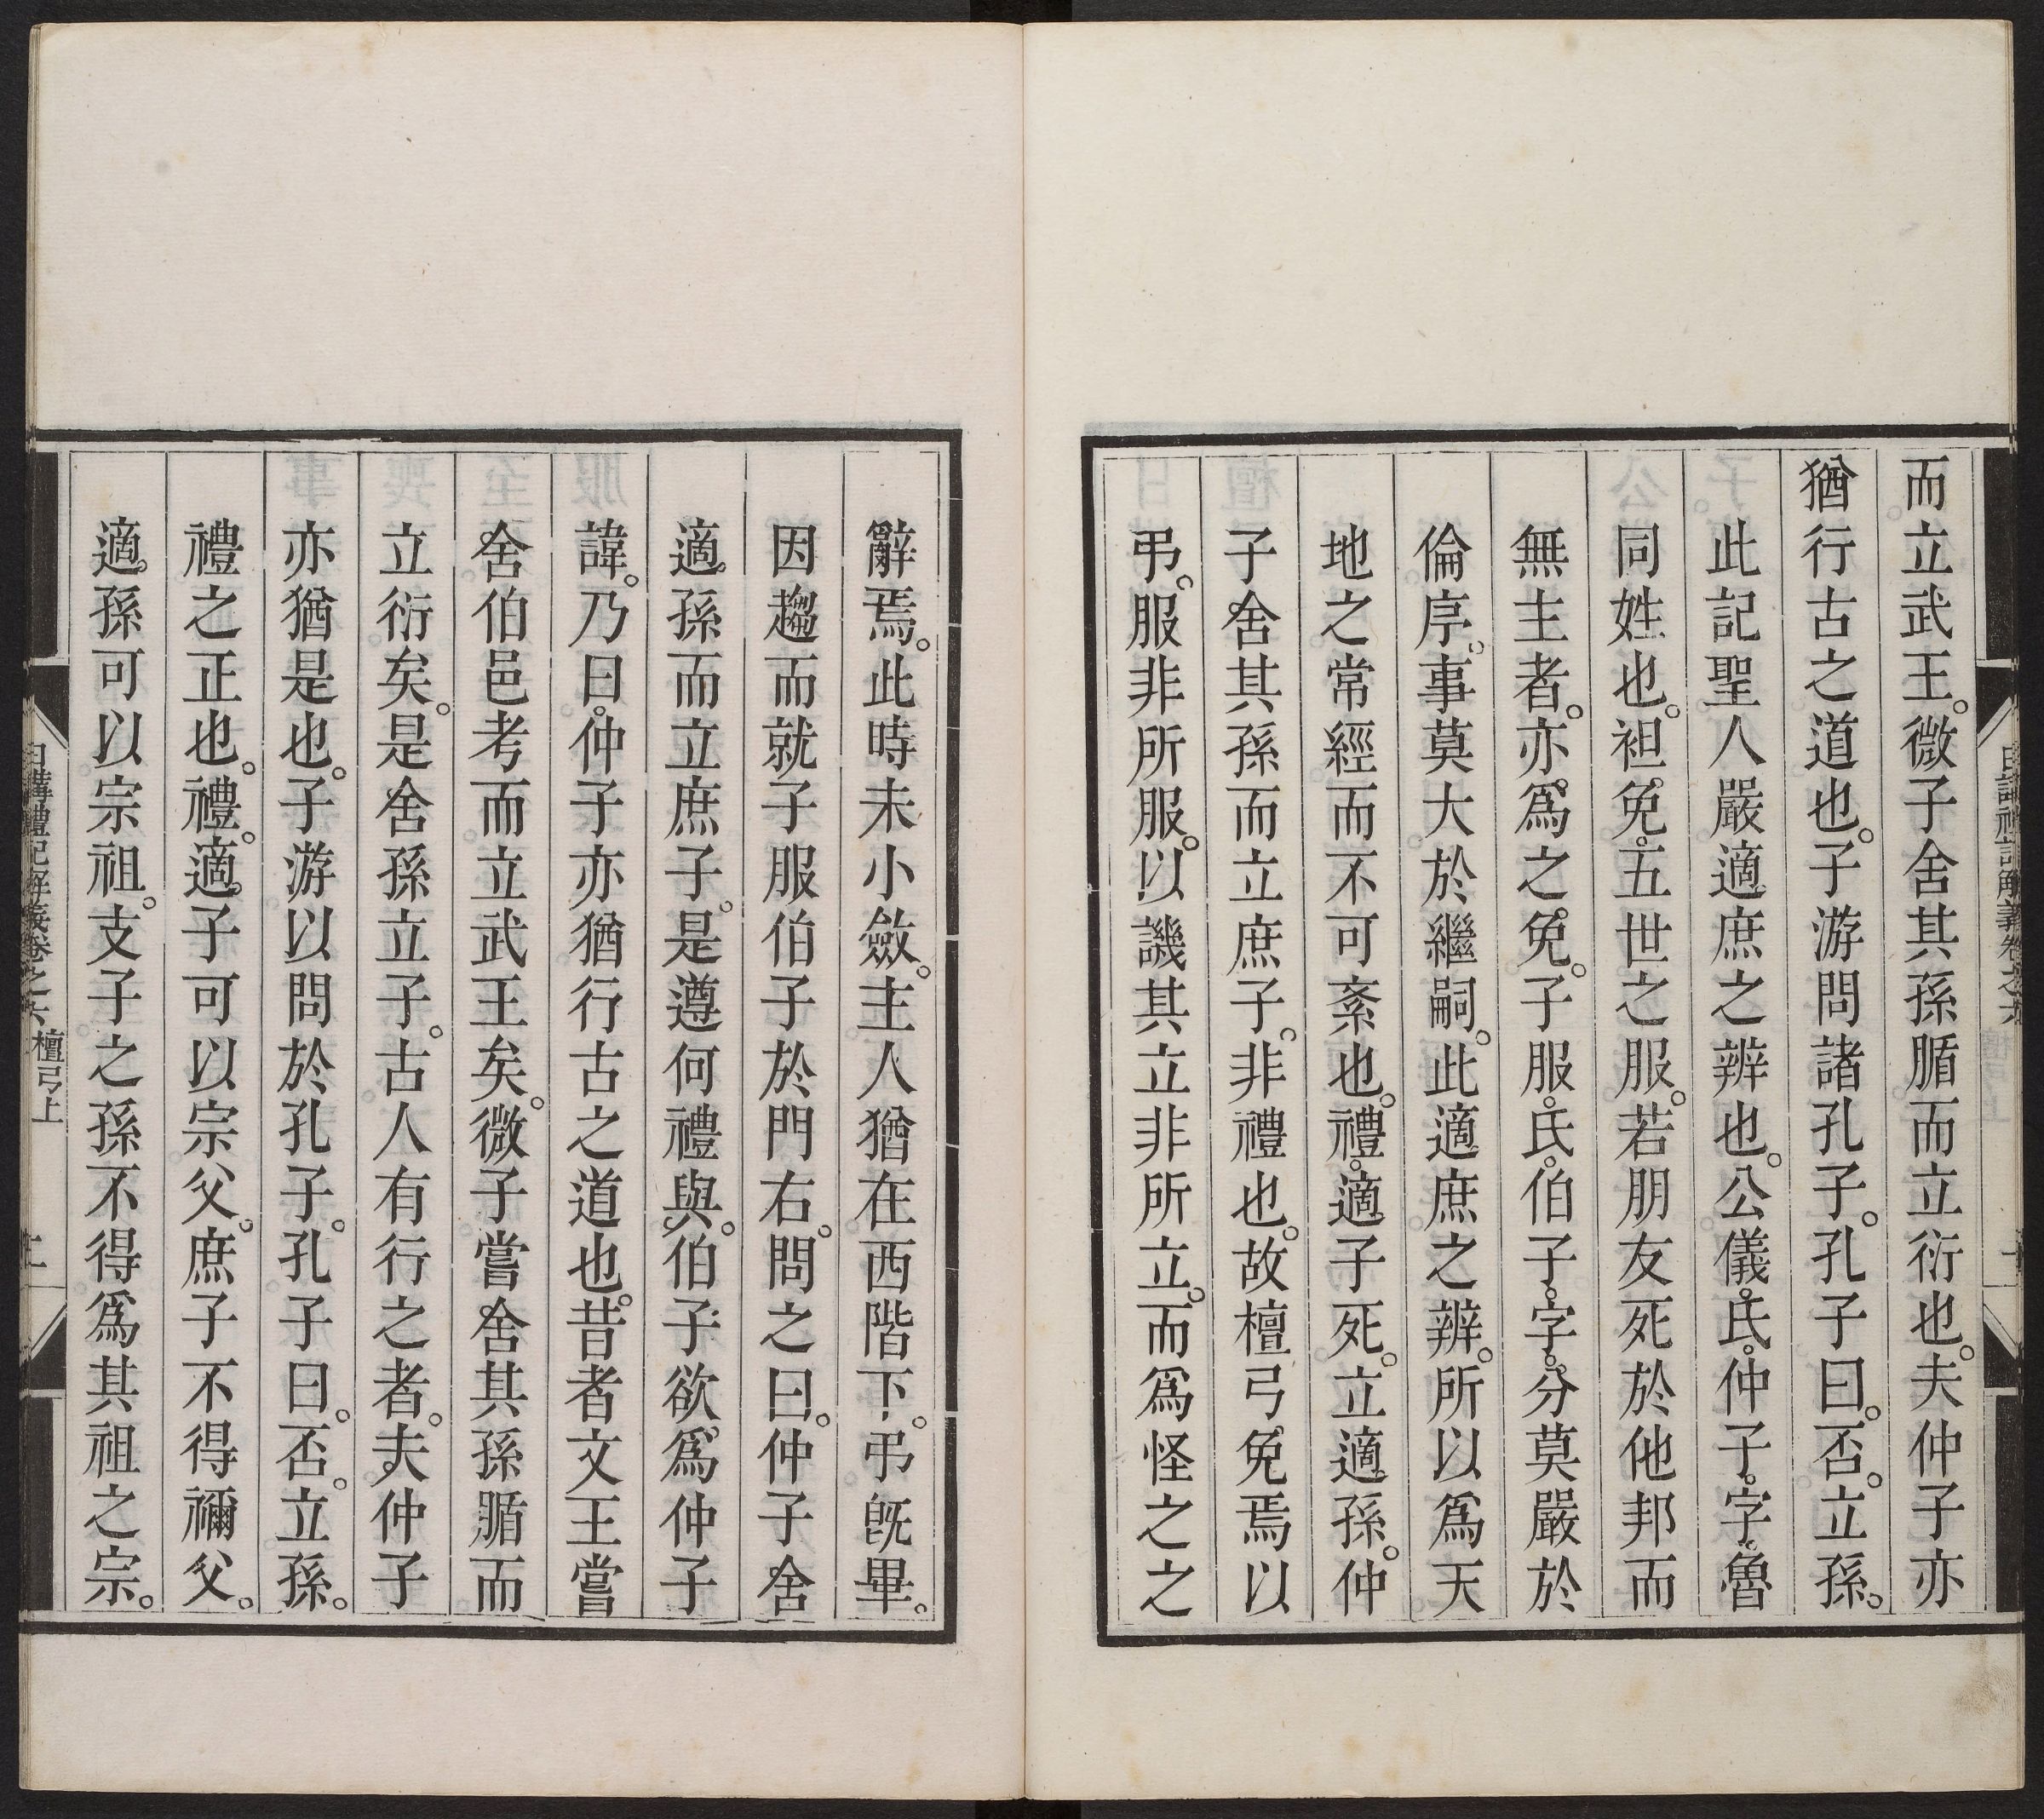 而立武王。微子舍其孫腯而立衍也。夫仲子亦
猶行古之道也。子游問諸孔子。孔子曰。否。立孫。
此記聖人嚴適庶之辨也。公儀。氏。仲子。字。魯
同姓也。袒免。五世之服。若朋友死於他邦而
無主者。亦為之免。子服。氏。伯子。字。分莫嚴於
倫序。事莫大於繼嗣。此適庶之辨。所以為天
地之常經而不可紊也。禮。適子死。立適孫。仲
子舍其孫而立庶子。非禮也。故檀弓免焉以
弔。服非所服。以譏其立非所立。而為怪之之
辭焉。此時未小斂。主人猶在西階下。弔旣畢。
因趨而就子服伯子於門右。問之曰。仲子舍
適孫而立庶子。是遵何禮與。伯子欲為仲子
諱。乃曰。仲子亦猶行古之道也。昔者文王嘗
舍伯邑考而立武王矣。微子嘗舍其孫腯而
立衍矣。是舍孫立子。古人有行之者。夫仲子
亦猶是也。子游以問於孔子。孔子曰。否。立孫。
禮之正也。禮。適子可以宗父。庶子不得禰父。
適孫可以宗祖。支子之孫不得為其祖之宗。
日講禮記解義卷之六 檀弓上